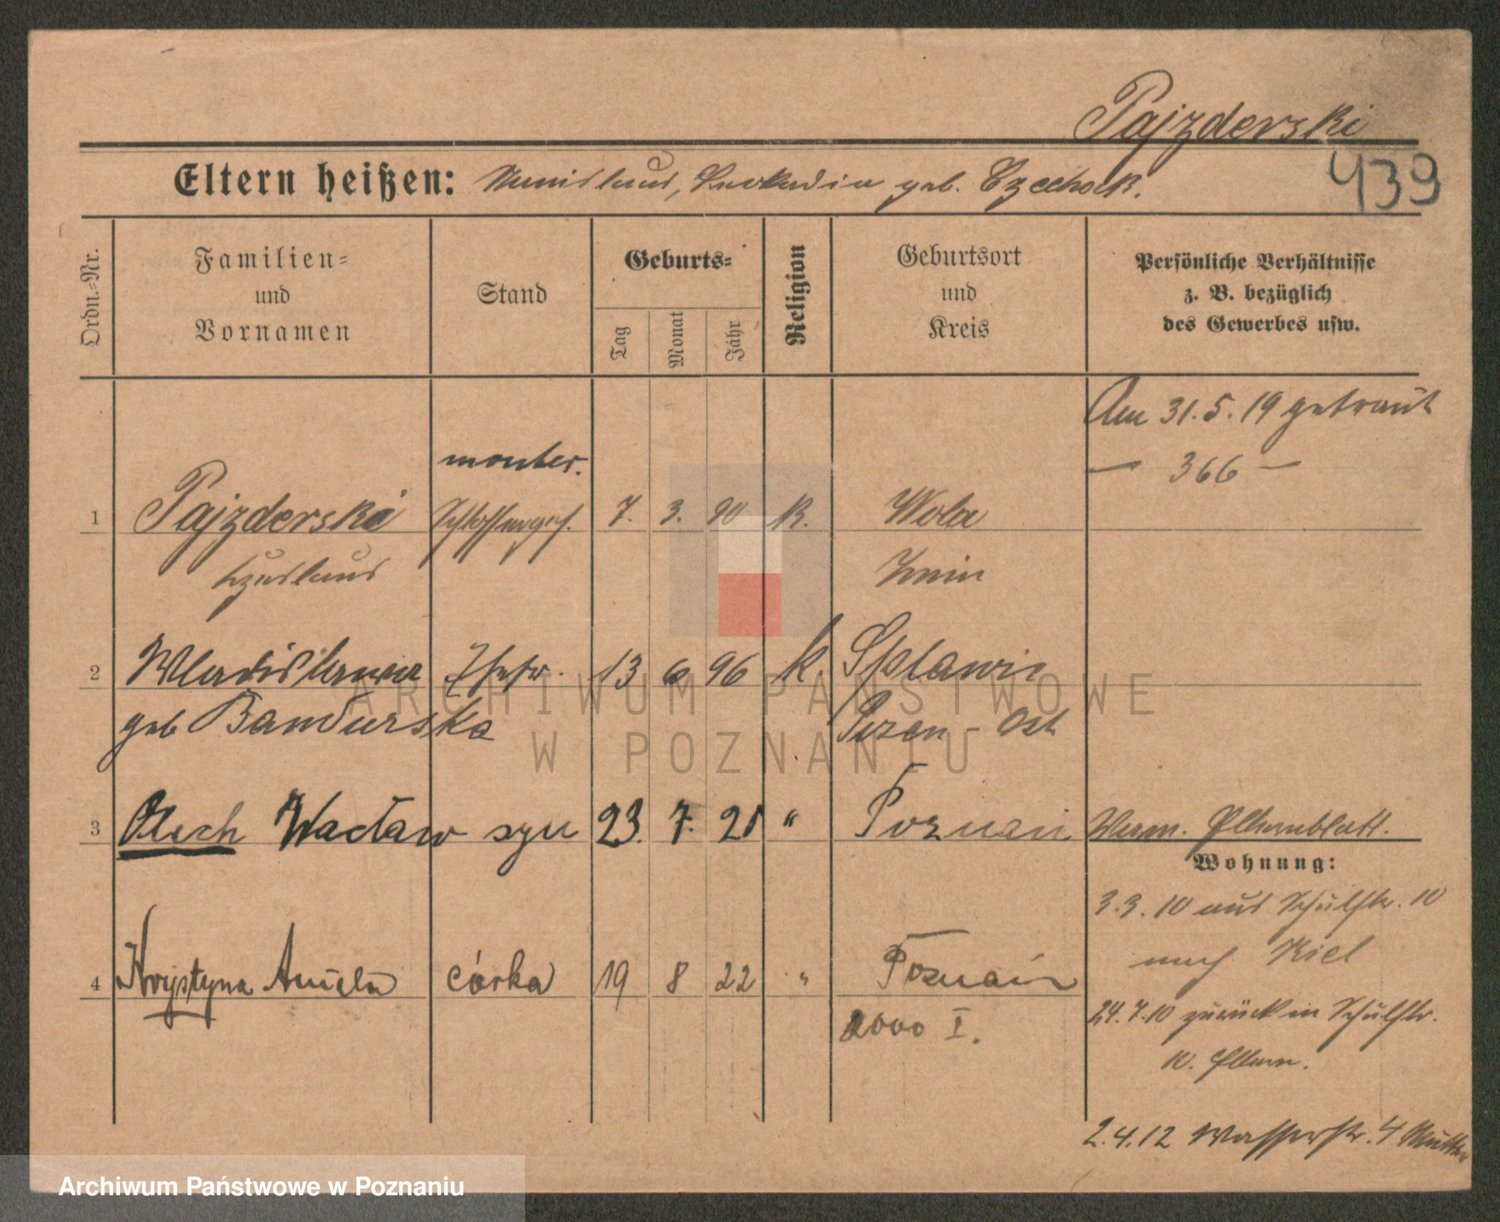 Pajzderski
439
Eltern heißen: Stanislaus, Leokadia geb. Czechock.
Ordn.-Nr.
Familien-
und
Vornamen
Stand
Geburts-
Tag
Monat
Jahr
Religion
Geburtsort
und
Kreis
Persönliche Verhältnisse
z. B. bezüglich
des Gewerbes usw.
Am 31.5.19 getraut
— 366 —
monter.
1 Pajzderski Schlosserges. 7. 3. 90 K. Wola
Znin
2 Wladislawa Ehefr. 13 6 96 k. Splawie
geb Bandurska Posen - Ost
3 Olech Wacław syn 23. 7. 21 " Poznań Verm. Elternblatt.
Wohnung:
3.3.10 aus Schulstr. 10
nach Kiel
4 Krystyna Aniela córka 19 8 22 " Poznań
2000 I.
24.7.10 zurück in Schulstr.
10. Eltern.
2.4.12 Wasserstr. 4 Mutter
ARCHIWUM PAŃSTWOWE
W POZNANIU
Archiwum Państwowe w Poznaniu